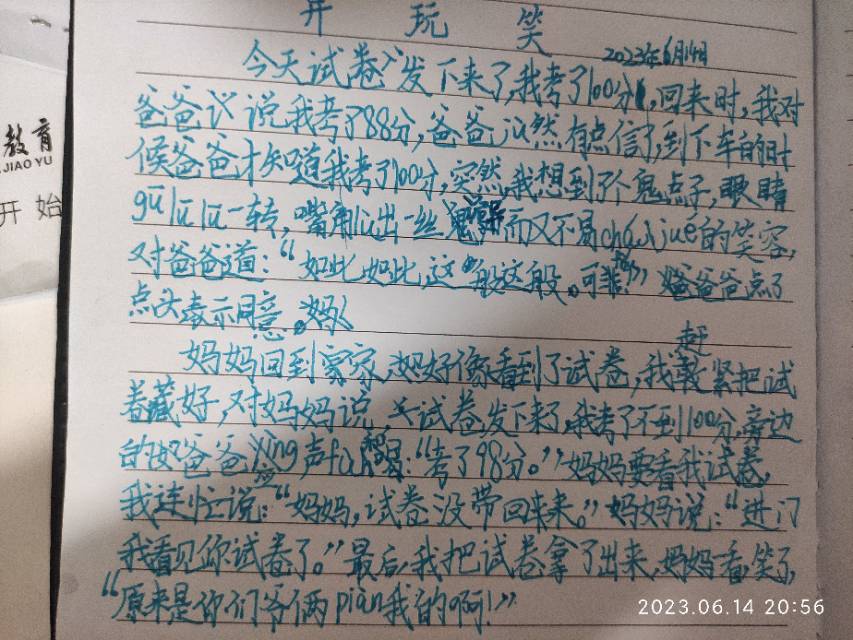 开玩笑
2023年6月14日
今天试卷发下来了,我考了100分,回来时,我对
爸爸说我考了88分,爸爸ju然有点信了,到下车的时
候爸爸才知道我考了100分,突然,我想到了个鬼点子,眼睛
gū lū lū一转,嘴角lù出一丝而又不易chá jué的笑容,
对爸爸道:“如此如此,这般这般。可" 爸爸点了
点头表示同意。妈
妈妈回到家家,妈好像看到了试卷,我赶紧把试
卷藏好,对妈妈说,试卷发下来了,我考了不到100分,旁边
的爸爸yìng声fù:“考了98分。”妈妈要看我试卷,
我连忙说:“妈妈,试卷没带回来。”妈妈说:“进门
我看见你试卷了。”最后,我把试卷拿了出来,妈妈看,笑了,
“原来是你们爷俩piàn我的啊!”
教育
JIAO YU
开始
2023.06.14 20:56